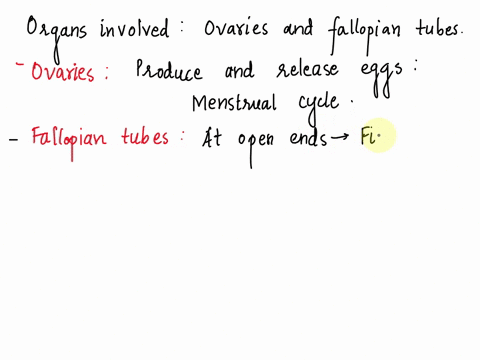 Organs involved : Ovaries and fallopian tubes.
- Ovaries : Produce and release eggs :
Menstrual cycle .
- Fallopian tubes : At open ends → Fi